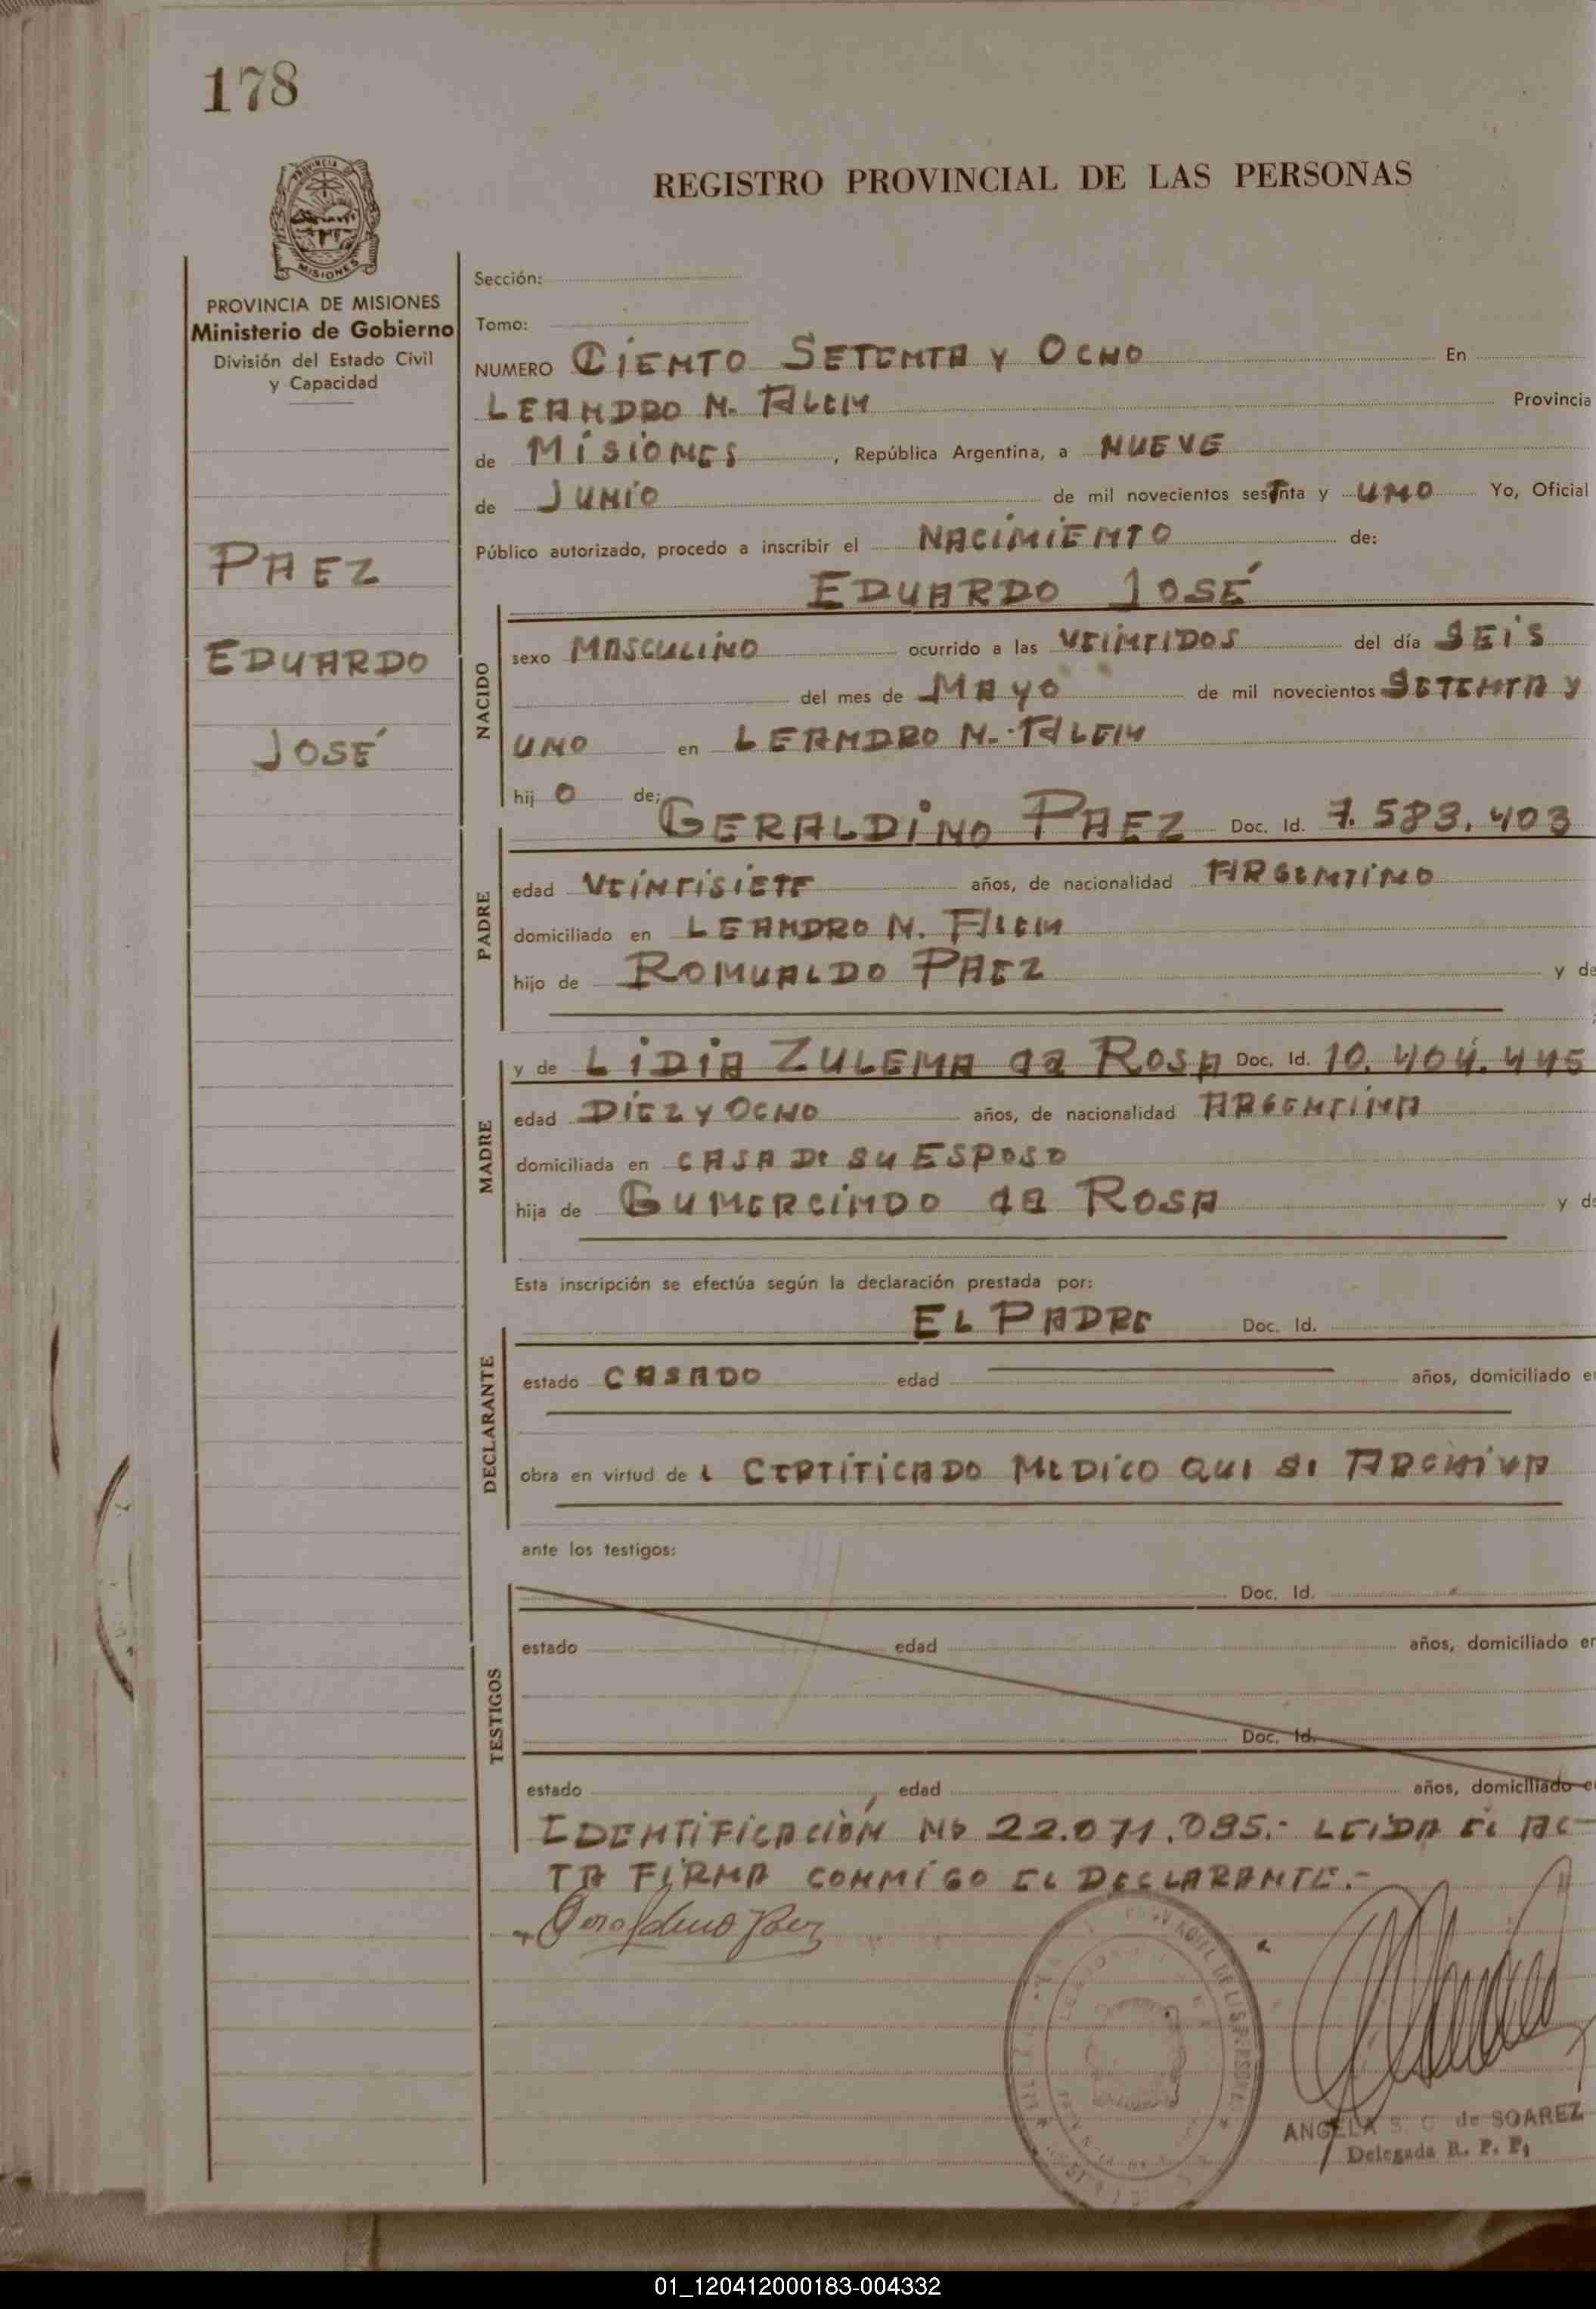 178
PROVINCIA
MISIONES
REGISTRO PROVINCIAL DE LAS PERSONAS
PROVINCIA DE MISIONES
Ministerio de Gobierno
División del Estado Civil
y Capacidad
PAEZ
EDUARDO
JOSÉ
Sección:
Tomo:
NUMERO CIENTO SETENTA Y OCHO En
LEANDRO N. ALEM Provincia
de MISIONES, República Argentina, a NUEVE
de JUNIO de mil novecientos sesTnta y UNO Yo, Oficial
Público autorizado, procedo a inscribir el NACIMIENTO de:
EDUARDO JOSÉ
NACIDO
sexo MASCULINO ocurrido a las VEINTIDOS del día SEIS
del mes de MAYO de mil novecientos SETENTA Y
UNO en LEANDRO N. ALEM
hij O de;
GERALDINO PAEZ Doc. Id. 7.583.403
PADRE
edad VEINTISIETE años, de nacionalidad ARGENTINO
domiciliado en LEANDRO N. ALEM
hijo de ROMUALDO PAEZ y de
y de LIDIA ZULEMA da ROSA Doc. Id. 10.404.445
MADRE
edad DIEZ Y OCHO años, de nacionalidad ARGENTINA
domiciliada en CASA DE SU ESPOSO
hija de GUMERCINDO da ROSA y d
Esta inscripción se efectúa según la declaración prestada por:
EL PADRE Doc. Id.
DECLARANTE
estado CASADO edad años, domiciliado e
obra en virtud de L CERTIFICADO MEDICO QUE SE ARCHIVA
ante los testigos:
TESTIGOS
Doc. Id.
estado edad años, domiciliado en
Doc. Id.
estado edad años, domiciliado e
IDENTIFICACIÓN Nº 22.071.085.- LEIDA EL AC-
TA FIRMA CONMIGO EL DECLARANTE.-
Geraldino Paez
ANGELA S. C. de SOAREZ
Delegada R. P. P.
01_120412000183-004332